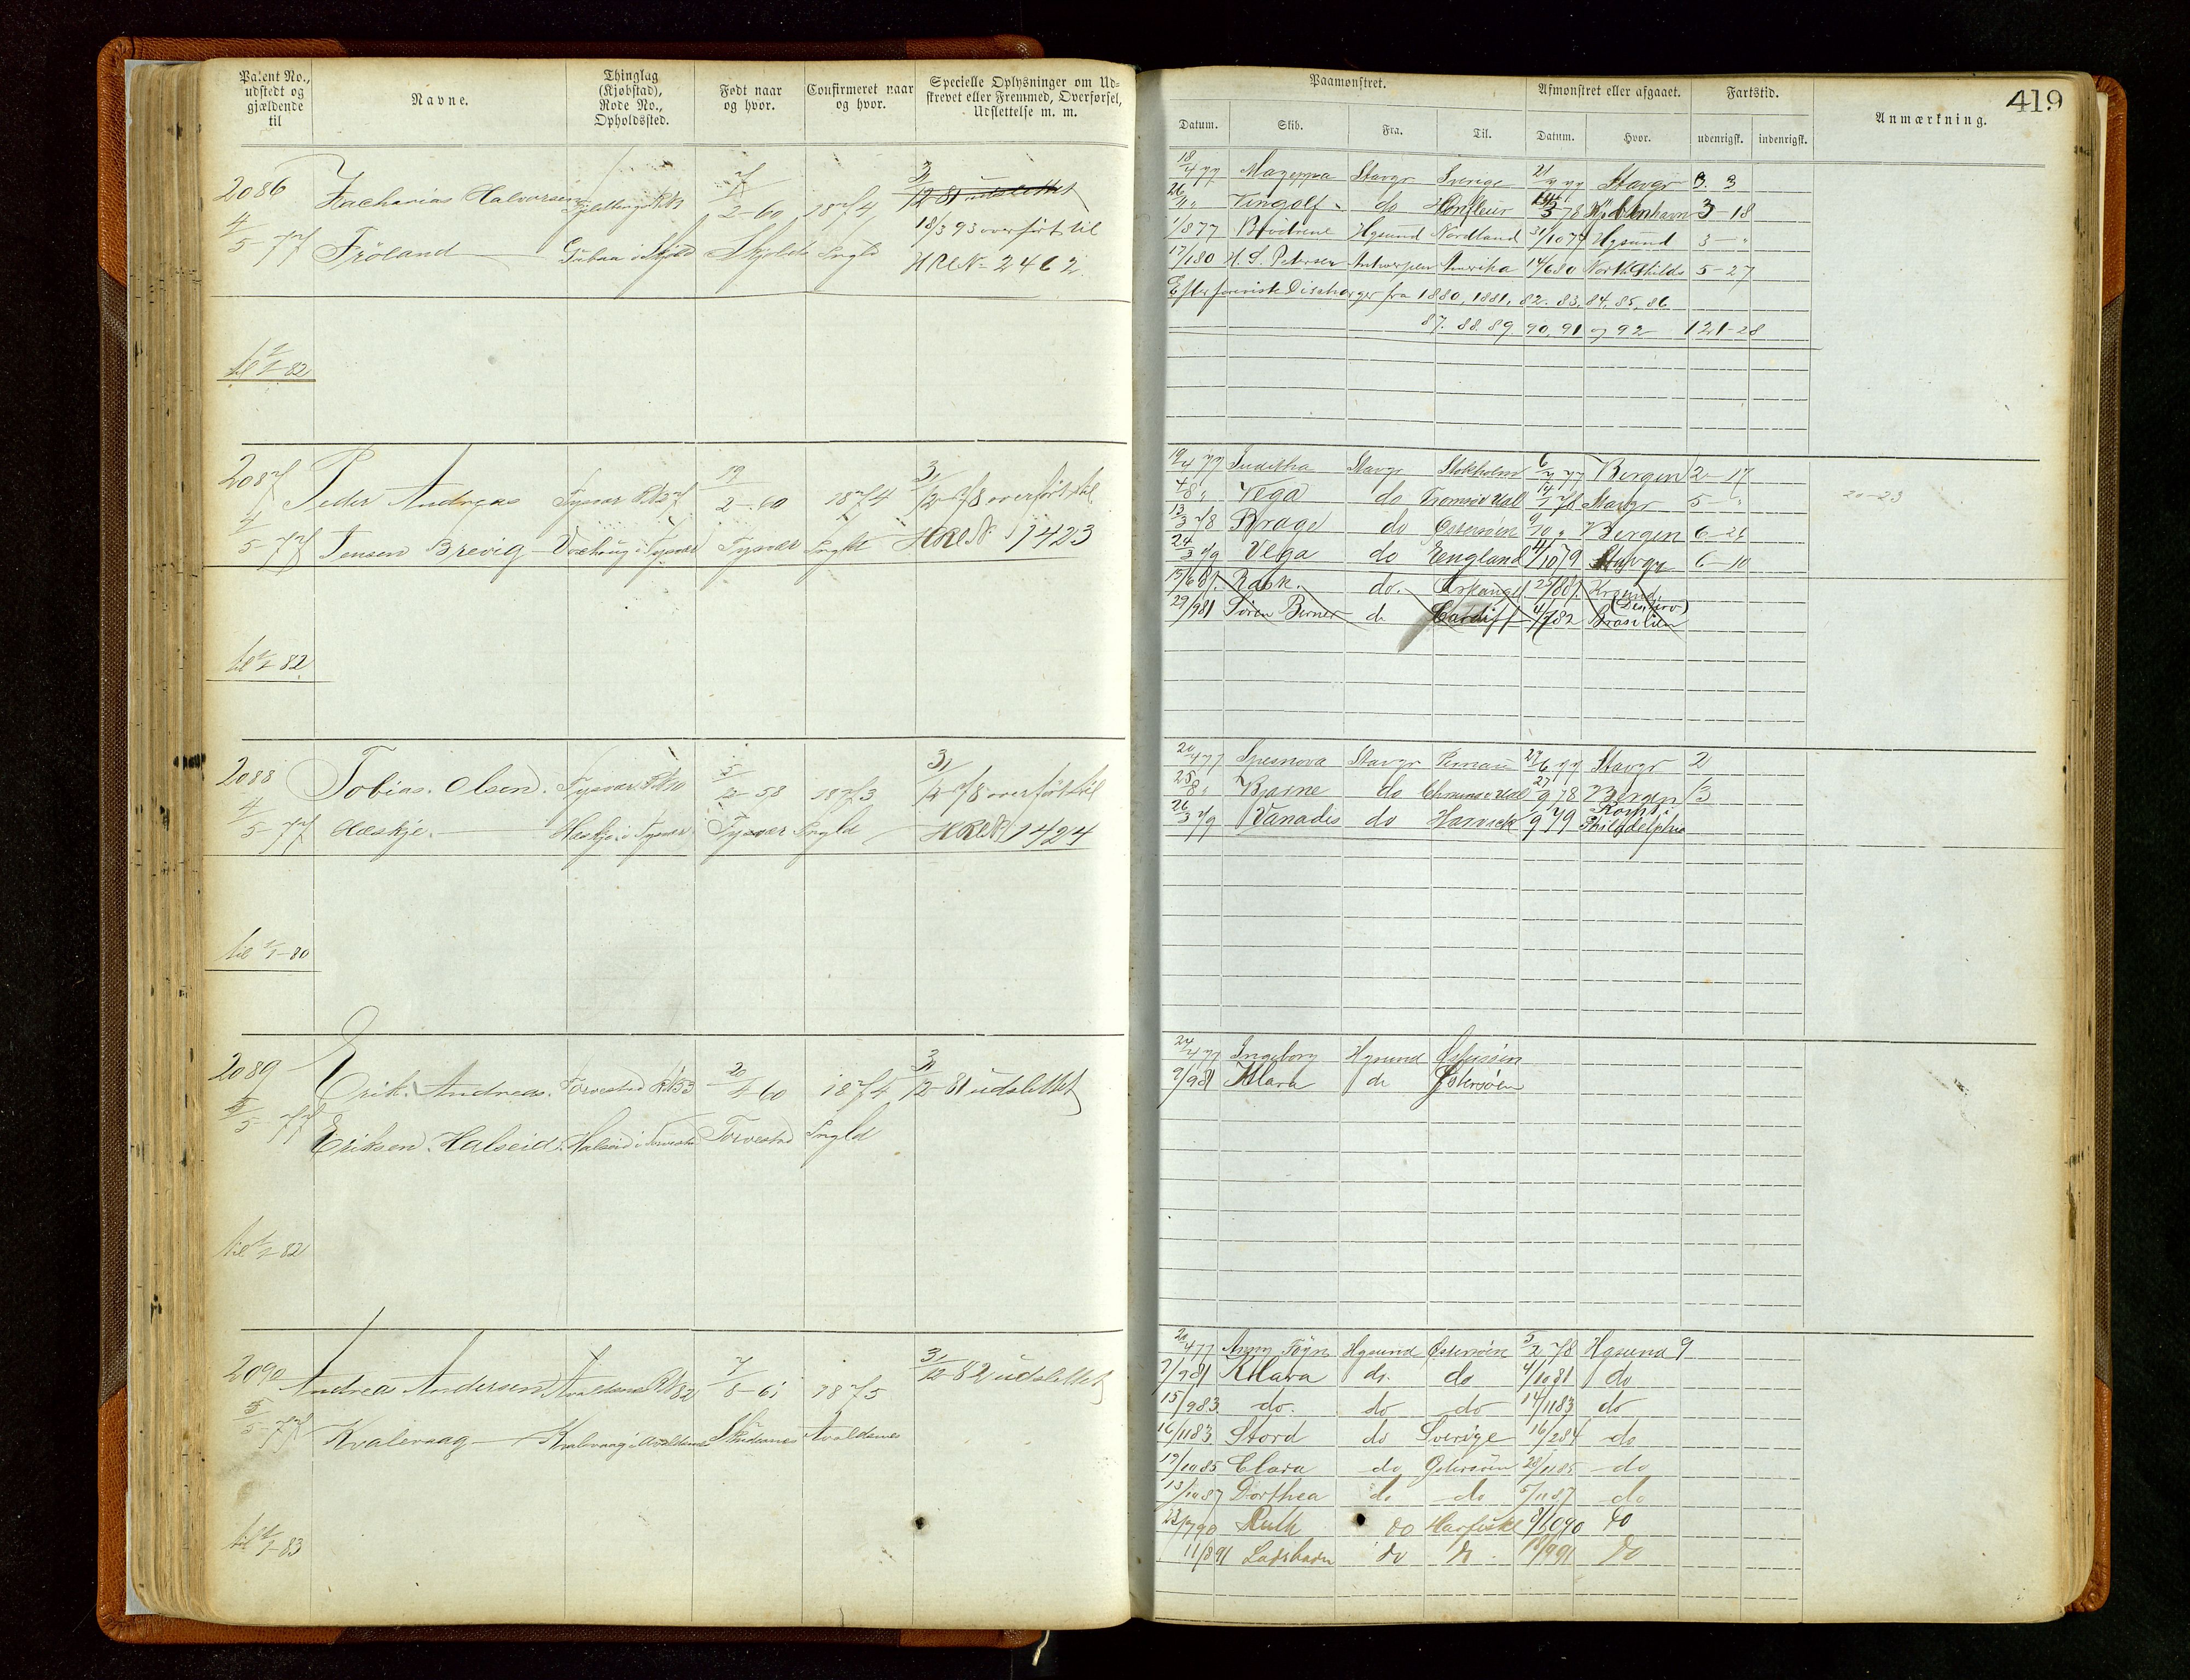 419
Patent No., udstedt og gjældende til
Navne.
Thinglag (Kjøbstad), Rode No., Opholdssted.
Født naar og hvor.
Confirmeret naar og hvor.
Specielle Oplysninger om Udskrevet eller Fremmed, Overførsel, Udslettelse m. m.
Paamønstret.
Afmønstret eller afgaaet.
Fartstid.
Anmærkning.
Datum. Skib. Fra. Til. Datum. Hvor. udenrigsk. indenrigsk.
2086 Zacharias Halvorsen 7/2-60 1874 31/12 81 udslettet
4/5-77 Fröland Skjold Ingld 18/3 93 overført til
HRN. 2462
til 1/1 82
18/4 77 Mazeppa Stavgr Sverige 21/7 77 Stavgr 3. 3
26/9 " Vingolf do Honfleur 78 Kjøbenhavn 3-18
1/8 77 Brødrene Hgsund Nordland 31/10 7 Hgsund 3-"
17/1 80 H. S. Petersen Antwerpen Amerika 14/6 80 North Shilds 5-27
Efter foreviste Discharger fra 1880, 1881, 82. 83, 84, 85, 86
87. 88. 89. 90, 91 og 92 121-28
2087 Peder Andreas Tysvær RN37 19/2-60 1874 31/12 78 overført til
4/5-77 Jensen Brevig Tysvær Tysvær Ingld HRN. 1423
til 1/1 82
19/4 77 Juditha Stavgr Stokholm 6/7 77 Bergen 2-17
4/8 " Vega do Tromsø Udl 14/1 78 Stavgr 5-"
20-23
13/3 78 Brage do Østersøen 9/10 " Bergen 6-26
24/3 79 Vega do England 4/10 79 Stavgr 6-10
15/6 81 Rask do. Arkangel Krsund.
29/9 81 Søren Berner do Cardiff 4/7 82 (Desertø) Brasilien
2088 Tobias Olsen Tysvær 5/12 58 1873 31/12 78 overført til
4/5-77 Hæskje Heskje i Tysvær Tysvær Ingld HRN 1424
til 1/1-80
20/4 77 Spesnova Stavgr Pernau 27/6 77 Stavgr 2
25/8 " Bjarne do Chrsund Udl 27/9 78 Bergen 13
26/3 79 Vanadis do Harwick 9 79 Rømt i Philadelphia
2089 Erik Andreas Torvestad RN33 20/4 60 1874 31/12 81 udslettet
5/5-77 Eriksen Halseid Halseid i Torvestad Torvestad Ingld
til 1/1 82
24/4 77 Ingeborg Hgsund Østersøen
2/9 81 Klara do Østersøen
2090 Andreas Andersen Avaldsnes RN82 7/8-61 1875 31/12 82 udslettet
5/5-77 Kvalevaag Kvalevaag i Avaldsnes Skudesnes Avaldsnes
til 1/1-83
20/4 77 Anny Føyn Hgsund Østersøen 5/2 78 Hgsund 9
2/9 81 Klara do. do 4/10 81 do
15/9 83. do. do do 14/11 83 do
16/11 83. Stord do Sverige 16/2 84 do
19/10 85 Clara do Østersøen 28/11 85 do
13/10 87 Dorthea do do 5/11 87 do
23/7 90 Ruth do Havfiske 8/10 90 do
11/8 91 do do 91 do